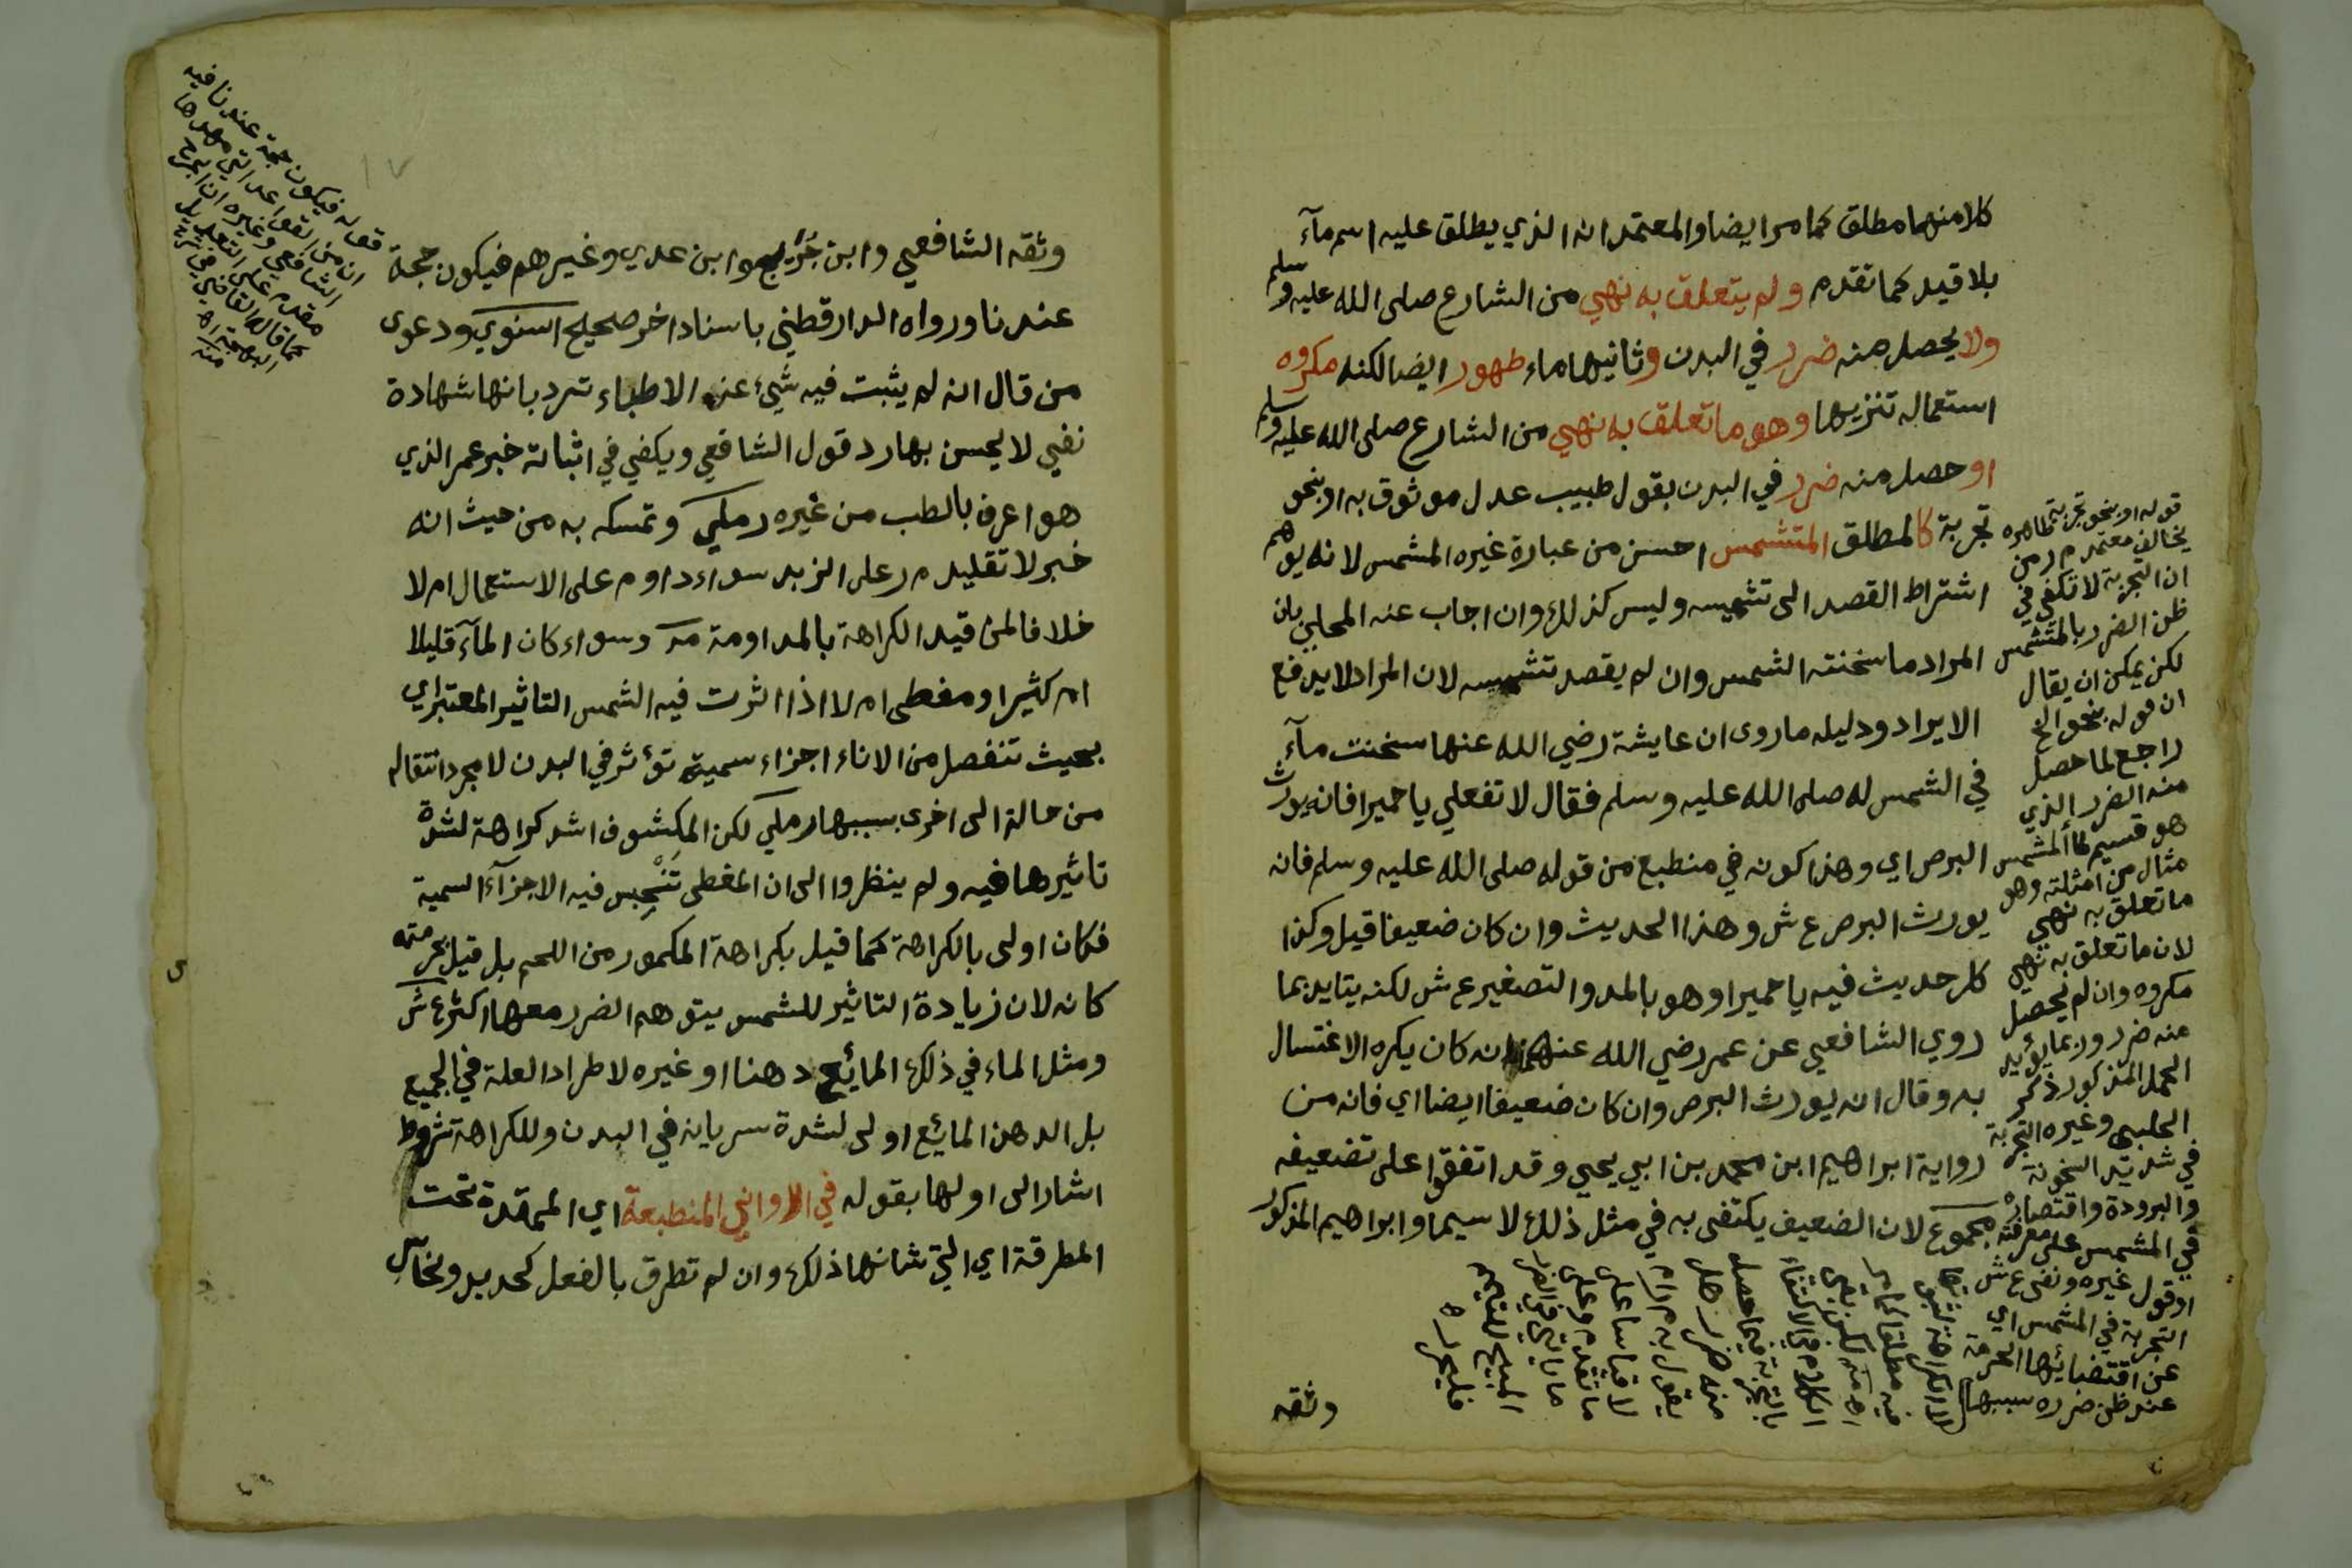 كلا منهما مطلق كما مر ايضا والمعتمد ان الذي يطلق عليه اسم مآء
بلا قيد كما تقدم ولم يتعلق به نهي من الشارع صلى الله عليه وسلم
ولا يحصل منه ضرر في البدن وثانيهما ماء طهور ايضا لكنه مكروه
استعماله تنزيها وهو ما تعلق به نهي من الشارع صلى الله عليه وسلم
او حصل منه ضرر في البدن بقول طبيب عدل موثوق به او بنحو
تجربة كالمطلق المتشمس احسن من عبارة غيره المشمس لانه يوهم
اشتراط القصد الى تشميسه وليس كذلك وان اجاب عنه المحلي بان
المراد ما سخنته الشمس وان لم يقصد تشميسه لان المراد لا يدفع
الايراد ودليله ما روى ان عايشة رضي الله عنها سخنت مآء
في الشمس له صلى الله عليه وسلم فقال لا تفعلي يا حميرا فانه يورث
البرص اي وهذا كونه في منطبع من قوله صلى الله عليه وسلم فانه
يورث البرص ع ش وهذا الحديث وان كان ضعيفا قيل وكذا
كل حديث فيه يا حميرا وهو بالمد والتصغير ع ش لكنه يتايد بما
روي الشافعي عن عمر رضي الله عنهما انه كان يكره الاغتسال
به وقال انه يورث البرص وان كان ضعيفا ايضا اي فانه من
رواية ابراهيم ابن محمد بن ابي يحيى وقد اتفقوا على تضعيفه
مجموع لان الضعيف يكتفى به في مثل ذلك لا سيما وابراهيم المذكور
وثقه
قوله او بنحو تجربة ظاهره
يخالف معتمد م ر من
ان التجربة لا تكفي في
ظن الضرر بالمتشمس
لكن يمكن ان يقال
ان قوله بنحو الخ
راجع لما حصل
منه الضرر الذي
هو قسيم لما المشمس
مثال من امثلته وهو
ما تعلق به نهي
لان ما تعلق به نهي
مكروه وان لم يحصل
منه ضرر وربما يؤيد
الحمل المذكور ذكر
الحلبي وغيره التجربة
في شديد السخونة
والبرودة واقتصاره
في المشمس على معرفته
او قول غيره ونفى ع ش
التجربة في المشمس اي
عن اقتضائها الحرمة
عند ظن ضرره بسببها
لا الكراهة لثبو
فيه مطلقا كما مر
اهـ منه لكن بقي
الكلام في الاكتفاء
بالتجربة فيما حصل
منه ضرر هل
يقول به م ر ام
لا قياسا على
ما تقدم وعلى
ما ياتي في الضرر
المبيح للتيمم
فليحرر اهـ
وثقه الشافعي وابن جُرَيج وابن عدي وغيرهم فيكون حجة
عندنا ورواه الدارقطني باسناد اخر صحيح اسنوي ودعوى
من قال انه لم يثبت فيه شئ عن الاطباء ترد بانها شهادة
نفي لا يحسن بها رد قول الشافعي ويكفي في اثباته خبر عمر الذي
هو اعرف بالطب من غيره رملي وتمسكه به من حيث انه
خبر لا تقليد م ر على الزبد سواء داوم على الاستعمال ام لا
خلافا لمن قيد الكراهة بالمداومة م ر وسواء كان المآء قليلا
ام كثيرا ومغطى ام لا اذا اثرت فيه الشمس التاثير المعتبر اي
بحيث تنفصل من الاناء اجزاء سمية تؤثر في البدن لا مجرد انتقاله
من حالة الى اخرى بسببها رملي لكن المكشوف اشد كراهة لشدة
تاثيرها فيه ولم ينظروا الى ان المغطى تَنْحبِس فيه الاجزآء السمية
فكان اولى بالكراهة كما قيل بكراهة المكمور من اللحم بل قيل بحرمته
كانه لان زيادة التاثير للشمس يتوهم الضرر معها اكثر ع ش
ومثل الماء في ذلك المائع دهنا او غيره لاطراد العلة في الجميع
بل الدهن المائع اولى لشدة سريانه في البدن وللكراهة شروط
اشار الى اولها بقوله في الاواني المنطبعة اي الممتدة تحت
المطرقة اي التي شانها ذلك وان لم تطرق بالفعل كحديد ونحاس
قوله فيكون حجة عندنا فيه
ان من القواعد التي مهدها
الشافعي وغيره ان الجرح
مقدم على التعديل
كما قاله القاضي في
البهجة اهـ
منه